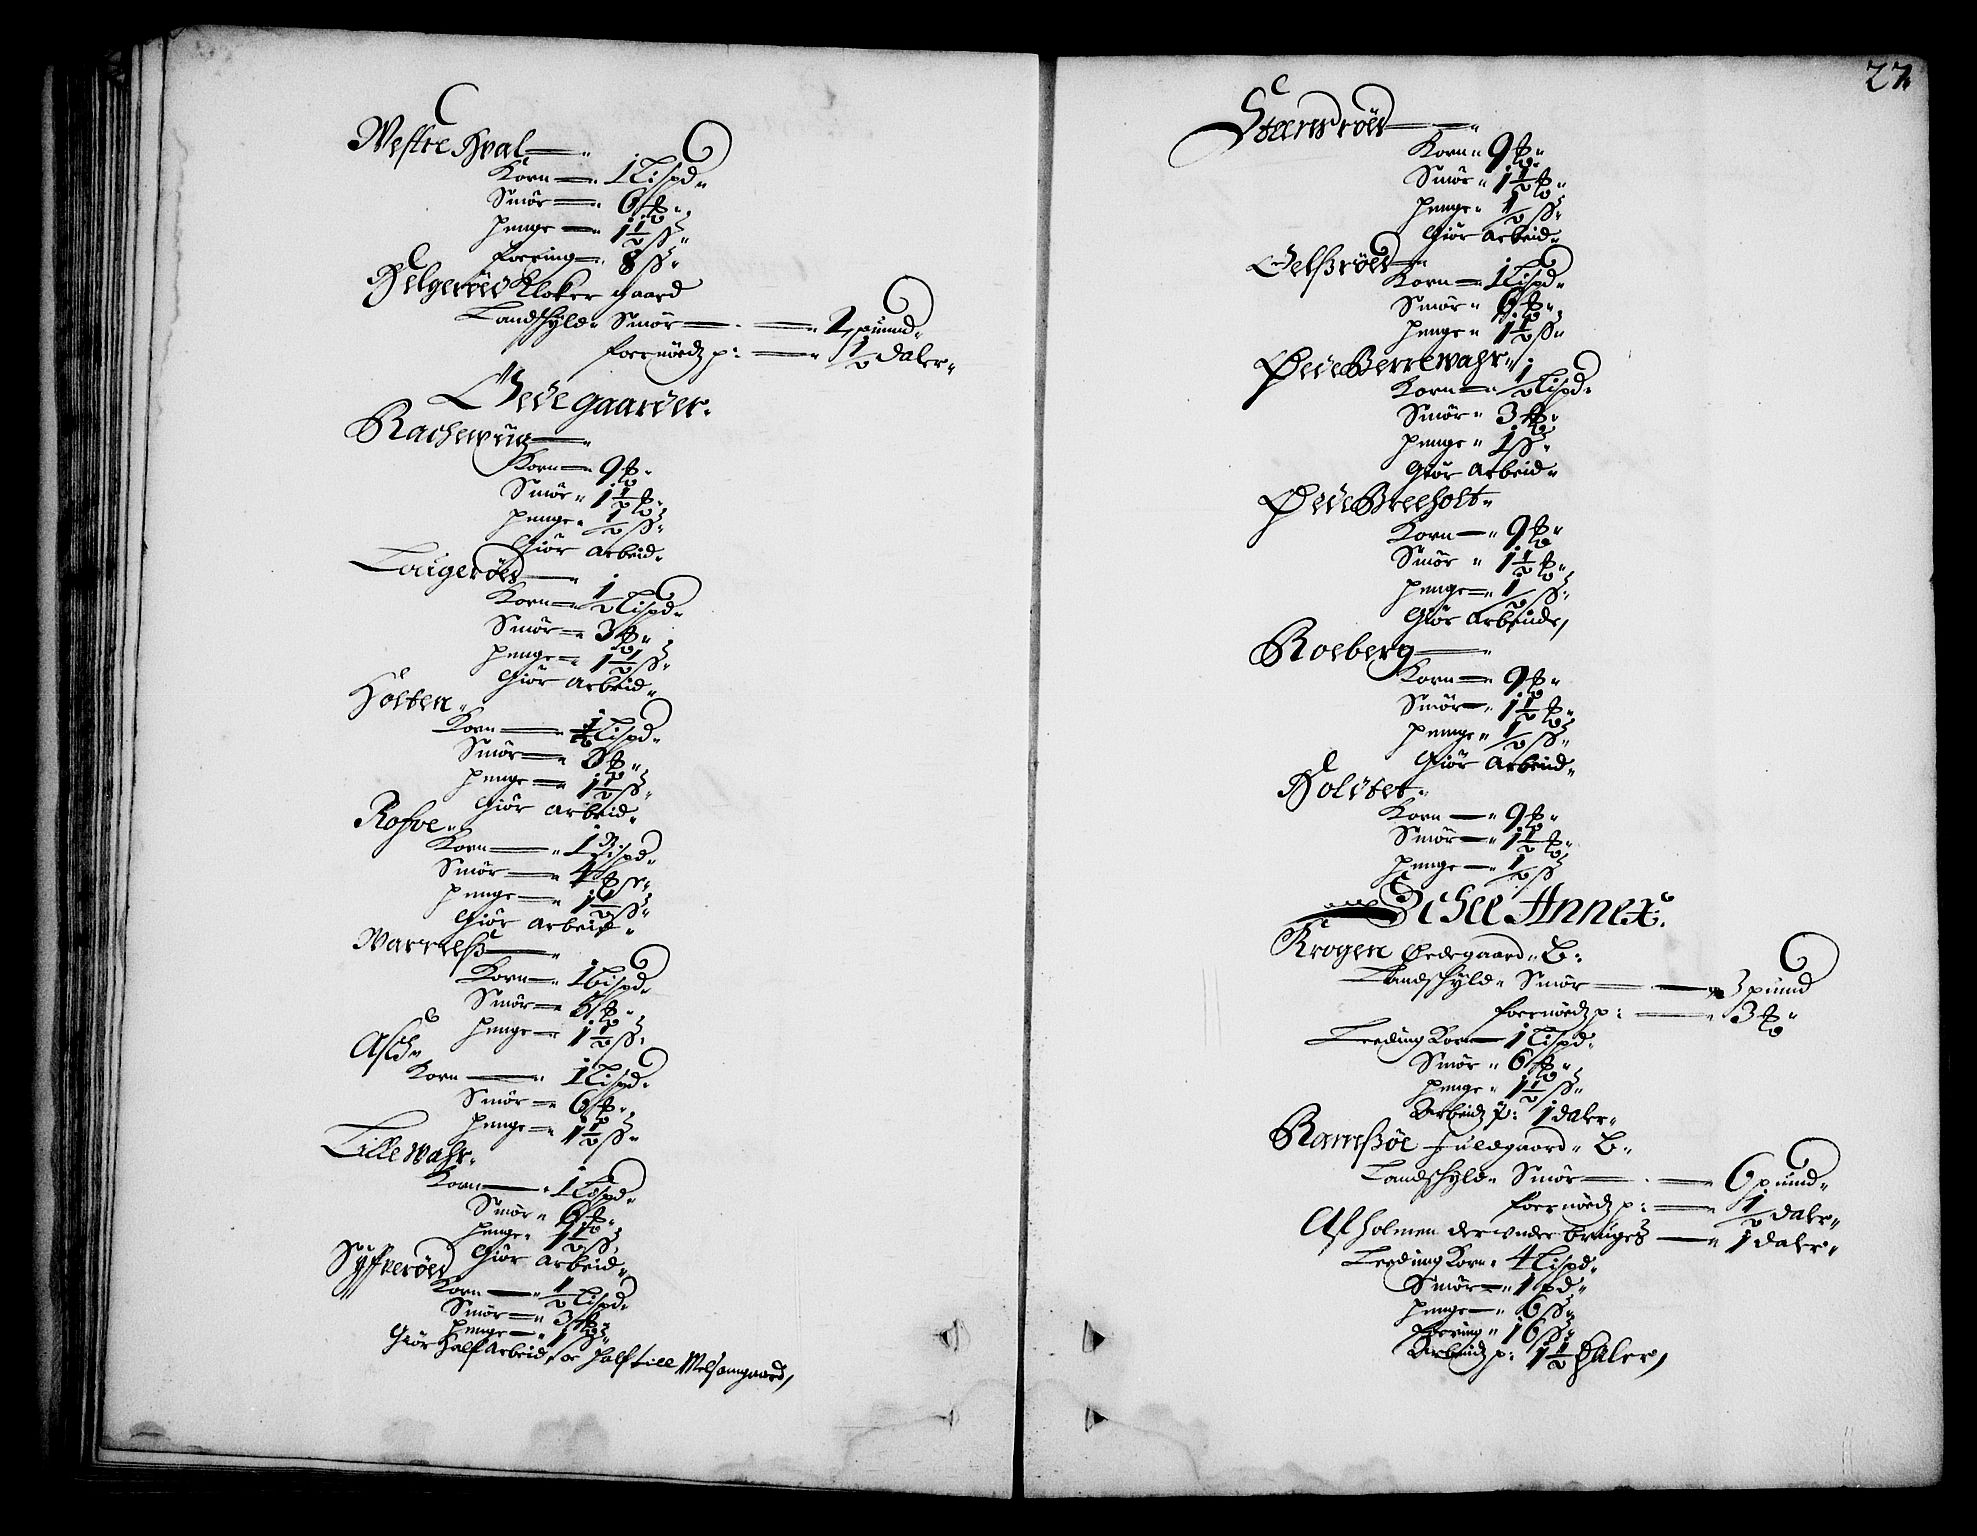 Westre Hval
Korn 1 Lispd
Smör 6 ℔
penge 1½ ß
foering 8 ß
Helgeröed Kloker gaard
Landschyld Smör 2 puund
foernöedz p: ½ daler
Ödegaarder.
Korn 9 ℔
Smör 1½ ℔
penge ½ ß
Giör Arbeid
Laugeröed
Korn ½ Lispd
Smör 3 ℔
penge 1½ ß
Giör Arbeid
Holten
Korn 1 Lispd
Smör 6 ℔
penge 1½ ß
Giör Arbeid
Rofve
Korn 1 Bispd
Smör 4 ℔
penge 1½ ß
Giör Arbeid
Warrelß
Korn 1 Bispd
Smör 6 ℔
penge 1½ ß
Asch
Korn 1 Lispd
Smör 6 ℔
penge 1½ ß
Lille Wahr
Korn 1 Lispd
Smör 6 ℔
penge 1½ ß
Giör Arbeid
Syfveröed
Korn ½ Lispd
Smör 3 ℔
penge 1 ß
Giör Half Arbeid, oc half till Melsomgaard
27.
Steensröed
Korn 9 ℔
Smör 1½ ℔
penge ½ ß
Giör Arbeid
Gelßröed
Korn 1 Lispd
Smör 6 ℔
penge 1½ ß
Öede Berrewahr
Korn ½ Lispd
Smör 3 ℔
penge 1 ß
Giör Arbeid
Öede Breeholt
Korn 9 ℔
Smör 1½ ℔
penge ½ ß
Giör Arbeide
Roeberg
Korn 9 ℔
Smör 1½ ℔
penge ½ ß
Giör Arbeid
Holdtet
Korn 9 ℔
Smör 1½ ℔
penge ½ ß
Schee Annex:
Krogen Ödegaard B:
Landschyld Smör 3 puund
foernöedz p: 3 ℔
Leeding Korn 1 Lispd
Smör 6 ℔
penge 1½ ß
Arbeidz p: 1 daler
Ramßöe fuldgaard B:
Landschyld Smör 6 puund
foernöedz p: ½ daler
Af holmen der under bruges 1 daler
Leeding Korn 4 Lispd
Smör 1 pd
penge 6 ß
foering 16 ß
Arbeidz p: 1½ Daler